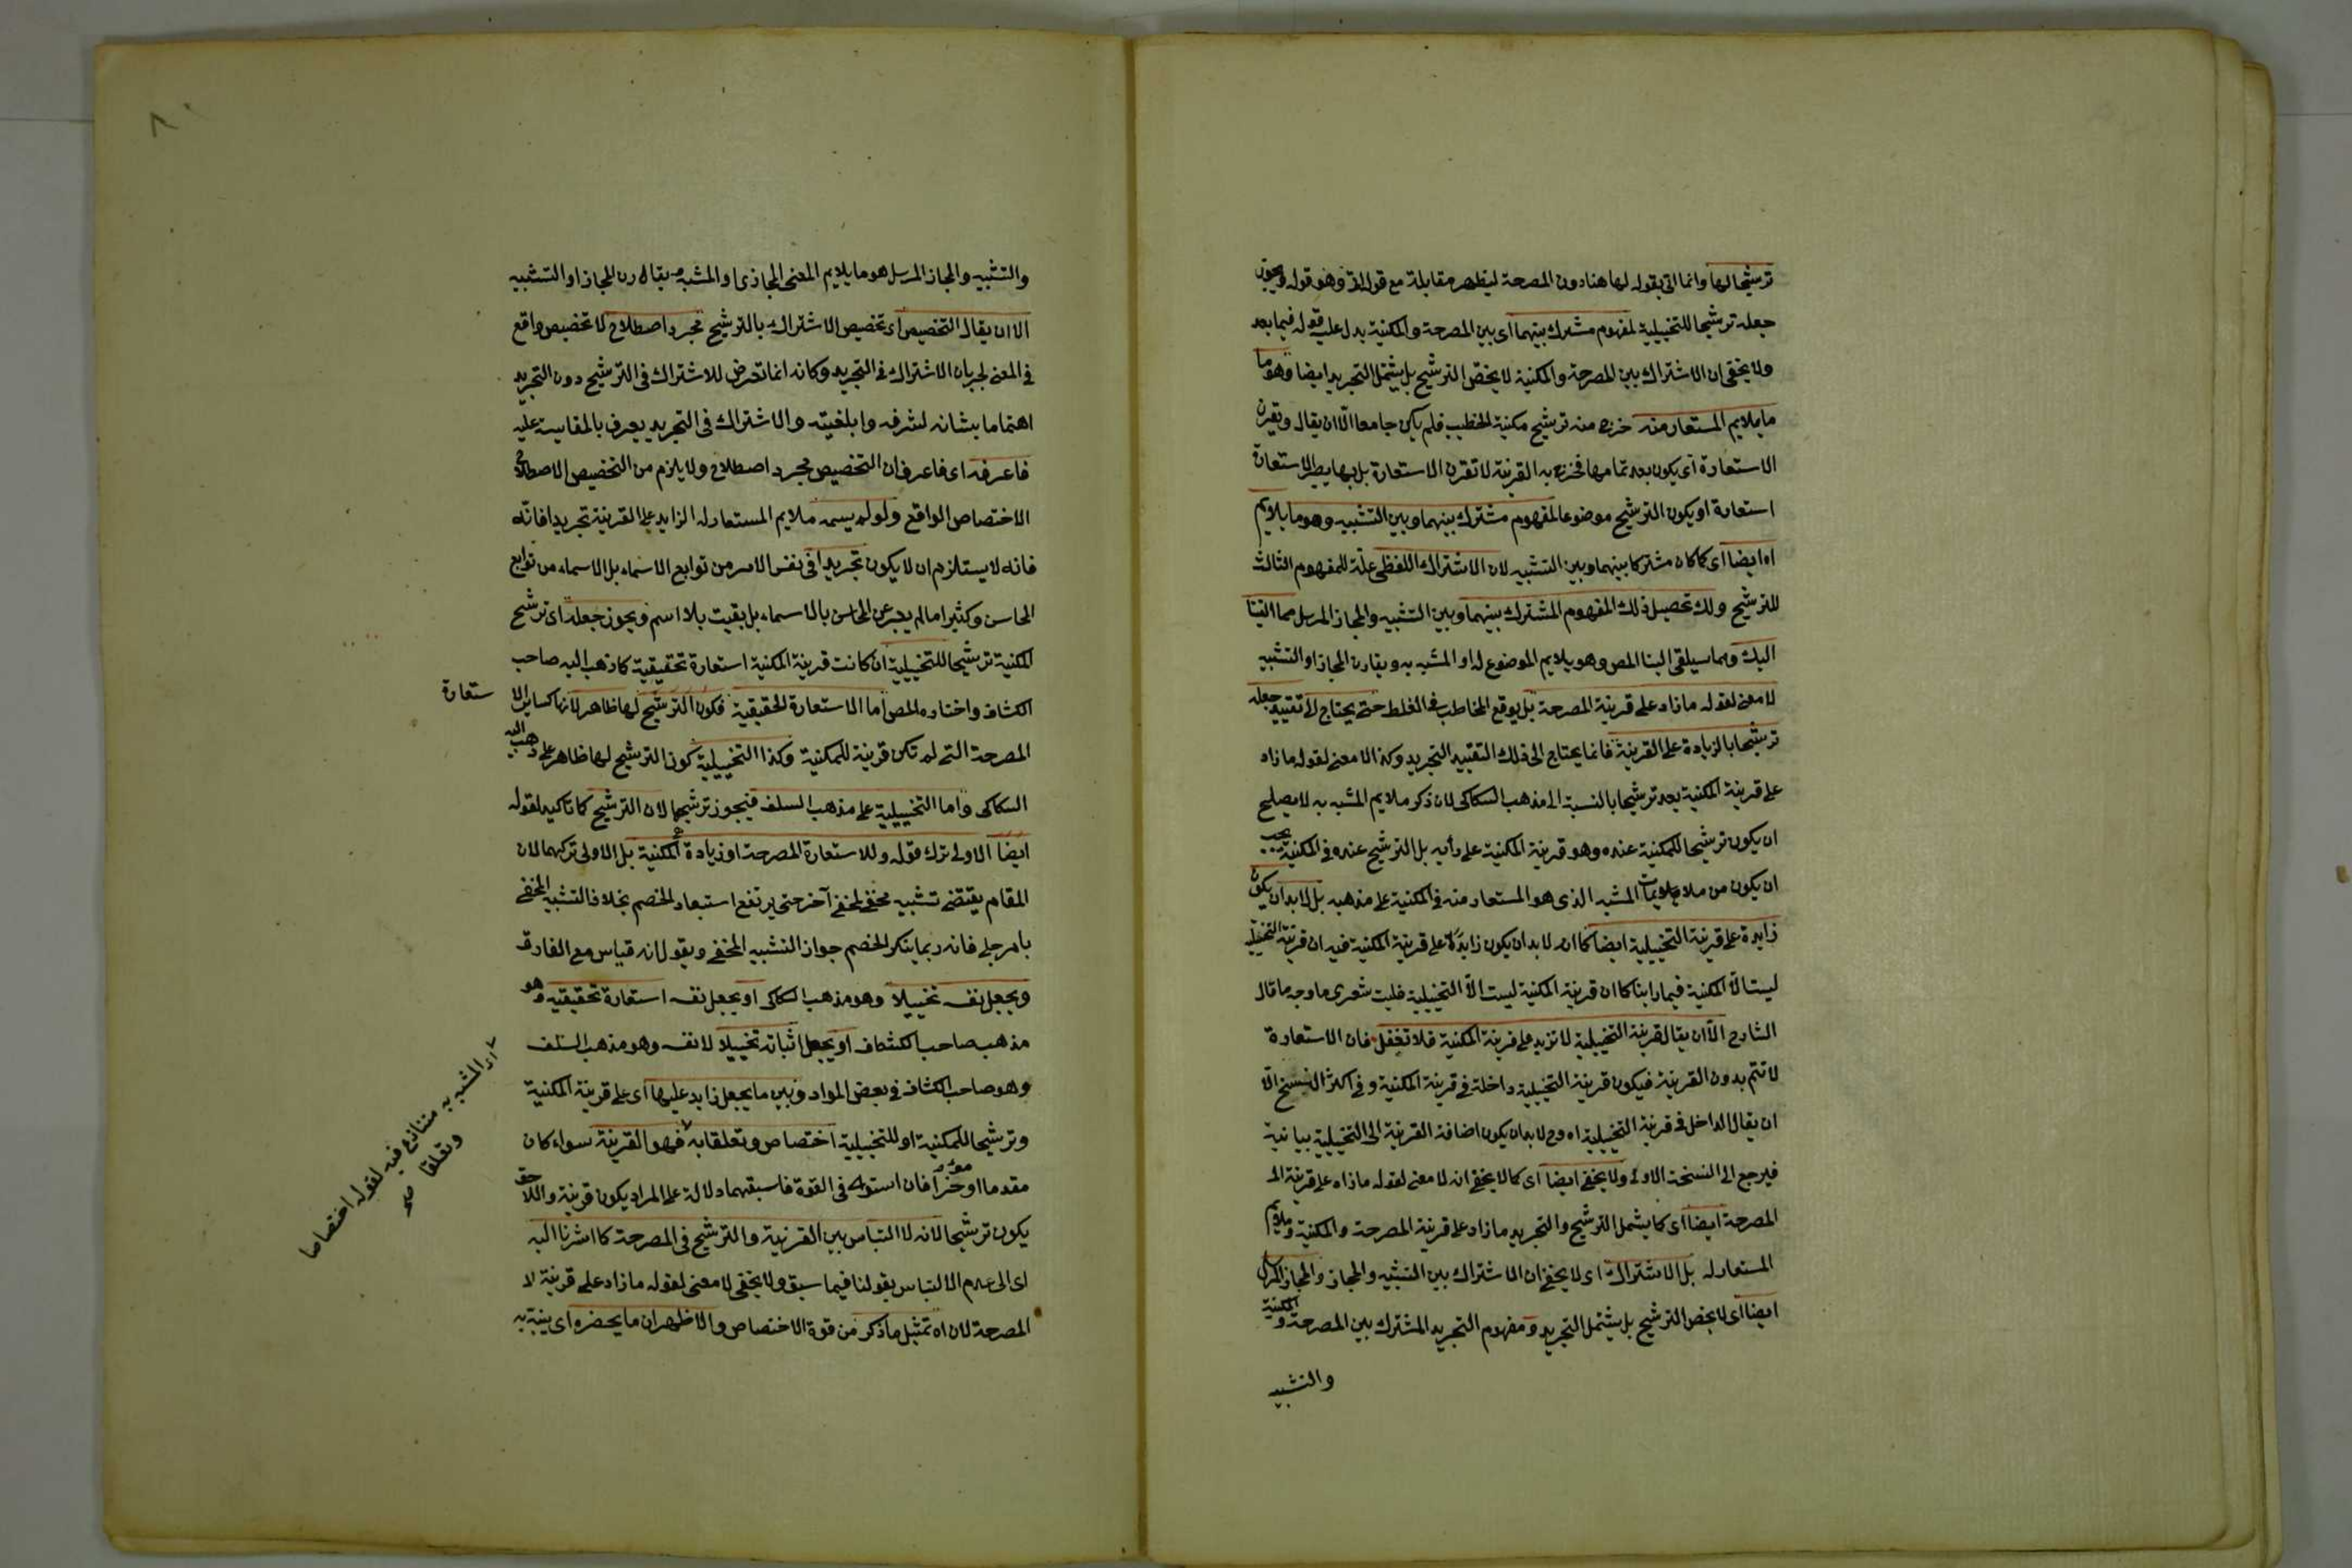 ترشيحا لها وانما اتى بقوله لها هنا دون المصرحة ليظهر مقابلة مع قوله الآتي وهو قوله ويجوز
جعله ترشيحا للتخييلية لمفهوم مشترك بينهما اى بين المصرحة والمكنية يدل عليه قوله فيما بعد
ولا يخفى ان الاشتراك بين المصرحة والمكنية لا يخص الترشيح بل يشمل التجريد ايضا وهو ما
ما يلايم المستعار منه خرج منه ترشيح مكنية الخطيب فلم يكن جامعا الّا ان يقال ويقرن
الاستعارة اى يكون بعد تمامها فخرج به القرينة لا تقرن الاستعارة بل بها يصير الاستعارة
استعارة او يكون الترشيح موضوعا لمفهوم مشترك بينهما وبين التشبيه وهو ما يلايم
اه ايضا اى كما كان مشتركا بينهما وبين التشبيه لان الاشتراك اللفظى علّة للمفهوم الثالث
للترشيح ولك تحصيل ذلك المفهوم المشترك بينهما وبين التشبيه والمجاز المرسل مما القينا
اليك ومما سيلقى الينا المص وهو يلايم الموضوع له او المشبه به ويقارن المجاز او التشبيه
لا معنى لقوله ما زاد على قرينة المصرحة بل يوقع المخاطب فى الغلط حتى يحتاج لا تقييد جعله
ترشيحا بالزيادة على القرينة فانما يحتاج الى ذلك التقييد التجريد وكذا لا معنى لقوله ما زاد
على قرينة المكنية يعد ترشيحا بالنسبة الى مذهب السكاكى لان ذكر ملايم المشبه به لا يصلح
ان يكون ترشيحا للمكنية عنده وهو قرينة المكنية على رأيه بل الترشيح عنده فى المكنية يجب
ان يكون من ملايمات المشبه الذى هو المستعار منه فى المكنية على مذهبه بل لا بد ان يكون
زايدة على قرينة التخييلية ايضا كما انه لا بد ان يكون زايدة على قرينة المكنية فيه ان قرينة التخييلية
ليست الّا المكنية فيما رأينا كما ان قرينة المكنية ليست الّا التخييلية فليت شعرى ما وجه ما قال
الشارح الّا ان يقال قرينة التخييلية لا تزيد على قرينة المكنية فلا تغفل فان الاستعارة
لا تتم بدون القرينة فيكون قرينة التخييلية داخلة فى قرينة المكنية وفى اكثر النسخ الّا
ان يقال الداخل فى قرينة التخييلية اه وح لا بد ان يكون اضافة القرينة الى التخييلية بيانية
فيرجع الى النسخة الاولى ولا يخفى ايضا اى كما لا يخفى انه لا معنى لقوله ما زاد على قرينة الى
المصرحة ايضا اى كما يشمل الترشيح والتجريد ما زاد على قرينة المصرحة والمكنية وملايم
المستعار له بل الاشتراك اى لا يخفى ان الاشتراك بين التشبيه والمجاز والمجاز المرسل
ايضا اى لا يخص الترشيح بل يشمل التجريد ومفهوم التجريد المشترك بين المصرحة والمكنية
والتشبيه
والتشبيه والمجاز المرسل هو ما يلايم المعنى المجازى او المشبه ويقارن المجاز او التشبيه
الا ان يقال التخصيص اى تخصيص الاشتراك بالترشيح مجرد اصطلاح لا تخصيص واقع
فى المعنى لجريان الاشتراك فى التجريد وكانه انما تعرض للاشتراك فى الترشيح دون التجريد
اهتماما بشانه لشرفه وابلغيته والاشتراك فى التجريد يعرف بالمقايسة عليه
فاعرفه اى فاعرف ان التخصيص مجرد اصطلاح ولا يلزم من التخصيص الاصطلاحى
الاختصاص الواقع ولو لم يسمه ملايم المستعار له الزايد على القرينة تجريدا فانّه
فانه لا يستلزم ان لا يكون تجريدا فى نفس الامر من توابع الاسماء بل الاسماء من توابع
المحاسن وكثيرا ما لم يعبر عن المحاسن بالاسماء بل بقيت بلا اسم ويجوز جعله اى ترشيح
المكنية ترشيحا للتخييلية ان كانت قرينة المكنية استعارة تحقيقية كما ذهب اليه صاحب
الكشاف واختاره المص اما الاستعارة الحقيقية فكون الترشيح لها ظاهر لانها كساير الا
ستعارة
المصرحة التى لم تكن قرينة للمكنية وكذا التخييلية كون الترشيح لها ظاهر على ذهب اليه
السكاكى واما التخييلية على مذهب السلف فيجوز ترشيحها لان الترشيح كما تأكيد لقوله
ايضا الاولى ترك قوله وللاستعارة المصرحة او زيادة المكنية بل الاولى تركهما لان
المقام يقتضى تشبيه مخفى لمخفى آخر حتى يرتفع استبعاد الخصم بخلاف التشبيه المخفى
بامر جلى فانه ربما ينكر الخصم جواز التشبيه المخفى ويقول انه قياس مع الفارق
ويجعل نفسه تخييلا وهو مذهب السكاكى او يجعل نفسه استعارة تحقيقية وهو
مذهب صاحب الكشاف او يجعل اثباته تخييلا لا نفسه وهو مذهب السلف
وهو صاحب الكشاف فى بعض المواد وبين ما يجعل زايد عليها اى على قرينة المكنية
وترشيحا للمكنية او للتخييلية اختصاص وتعلقا به فهو القرينة سواء كان
مقدما او مؤخرا فان استويا فى القوة فاسبقهما دلالة على المراد يكون قرينة واللاحق
يكون ترشيحا لانه لا التباس بين القرينة والترشيح فى المصرحة كما اشرنا اليه
اى الى عدم الالتباس بقولنا فيما سبق ولا يخفى لا معنى لقوله ما زاد على قرينة لا
المصرحة لان اه تمثيل ما ذكر من قوة الاختصاص والاظهر ان ما يحضره اى ينبه به
اى المشبه به متنازع فيه لقوله اختصاصا
وتعلقا